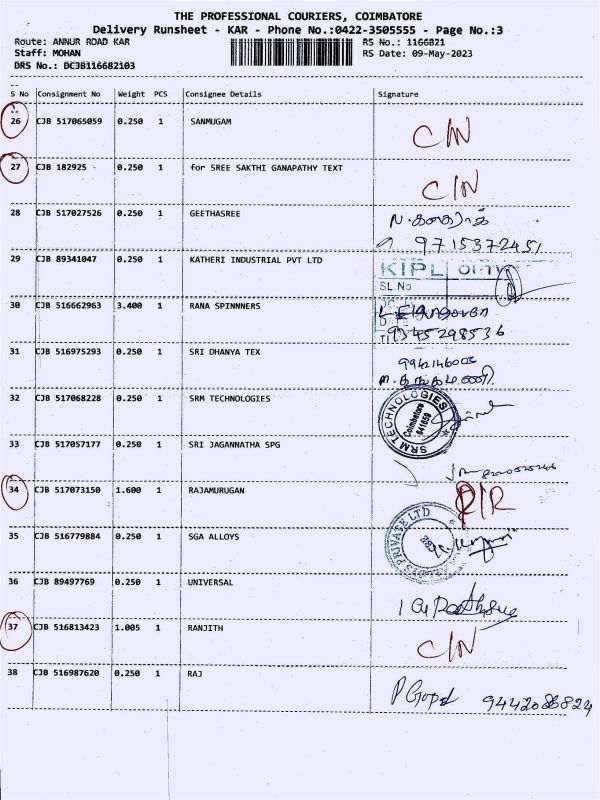 THE PROFESSIONAL COURIERS, COIMBATORE
Delivery Runsheet - KAR - Phone No.:0422-3505555 - Page No.:3
Route: ANNUR ROAD KAR RS No.: 1166821
Staff: MOHAN RS Date: 09-May-2023
DRS No.: DCJB116682103
S No Consignment No Weight PCS Consignee Details Signature
26 CJB 517065059 0.250 1 SANMUGAM C/N
27 CJB 182925 0.250 1 for SREE SAKTHI GANAPATHY TEXT C/N
28 CJB 517027526 0.250 1 GEETHASREE
9715372451
29 CJB 89341047 0.250 1 KATHERI INDUSTRIAL PVT LTD KIPL
SL.No
30 CJB 516662963 3.400 1 RANA SPINNNERS
9345298536
31 CJB 516975293 0.250 1 SRI DHANYA TEX
32 CJB 517068228 0.250 1 SRM TECHNOLOGIES SRM TECHNOLOGIES Coimbatore 641659
33 CJB 517057177 0.250 1 SRI JAGANNATHA SPG
34 CJB 517073150 1.600 1 RAJAMURUGAN R/R
35 CJB 516779884 0.250 1 SGA ALLOYS PRIVATE LTD
36 CJB 89497769 0.250 1 UNIVERSAL
37 CJB 516813423 1.005 1 RANJITH C/N
38 CJB 516987620 0.250 1 RAJ P Gopal 9442086824